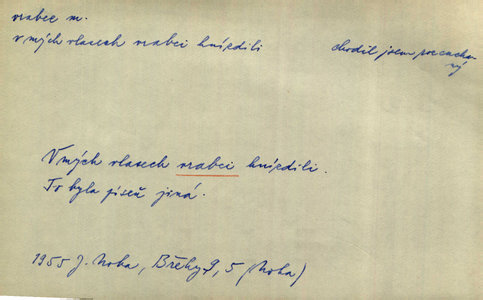 vrabec m.
v mých vlasech vrabci hnízdili
chodil jsem rozcucha
ný
V mých vlasech vrabci hnízdili.
To byla píseň jiná.
1955 J. Noha, Břehy 9, 5 (Noha)